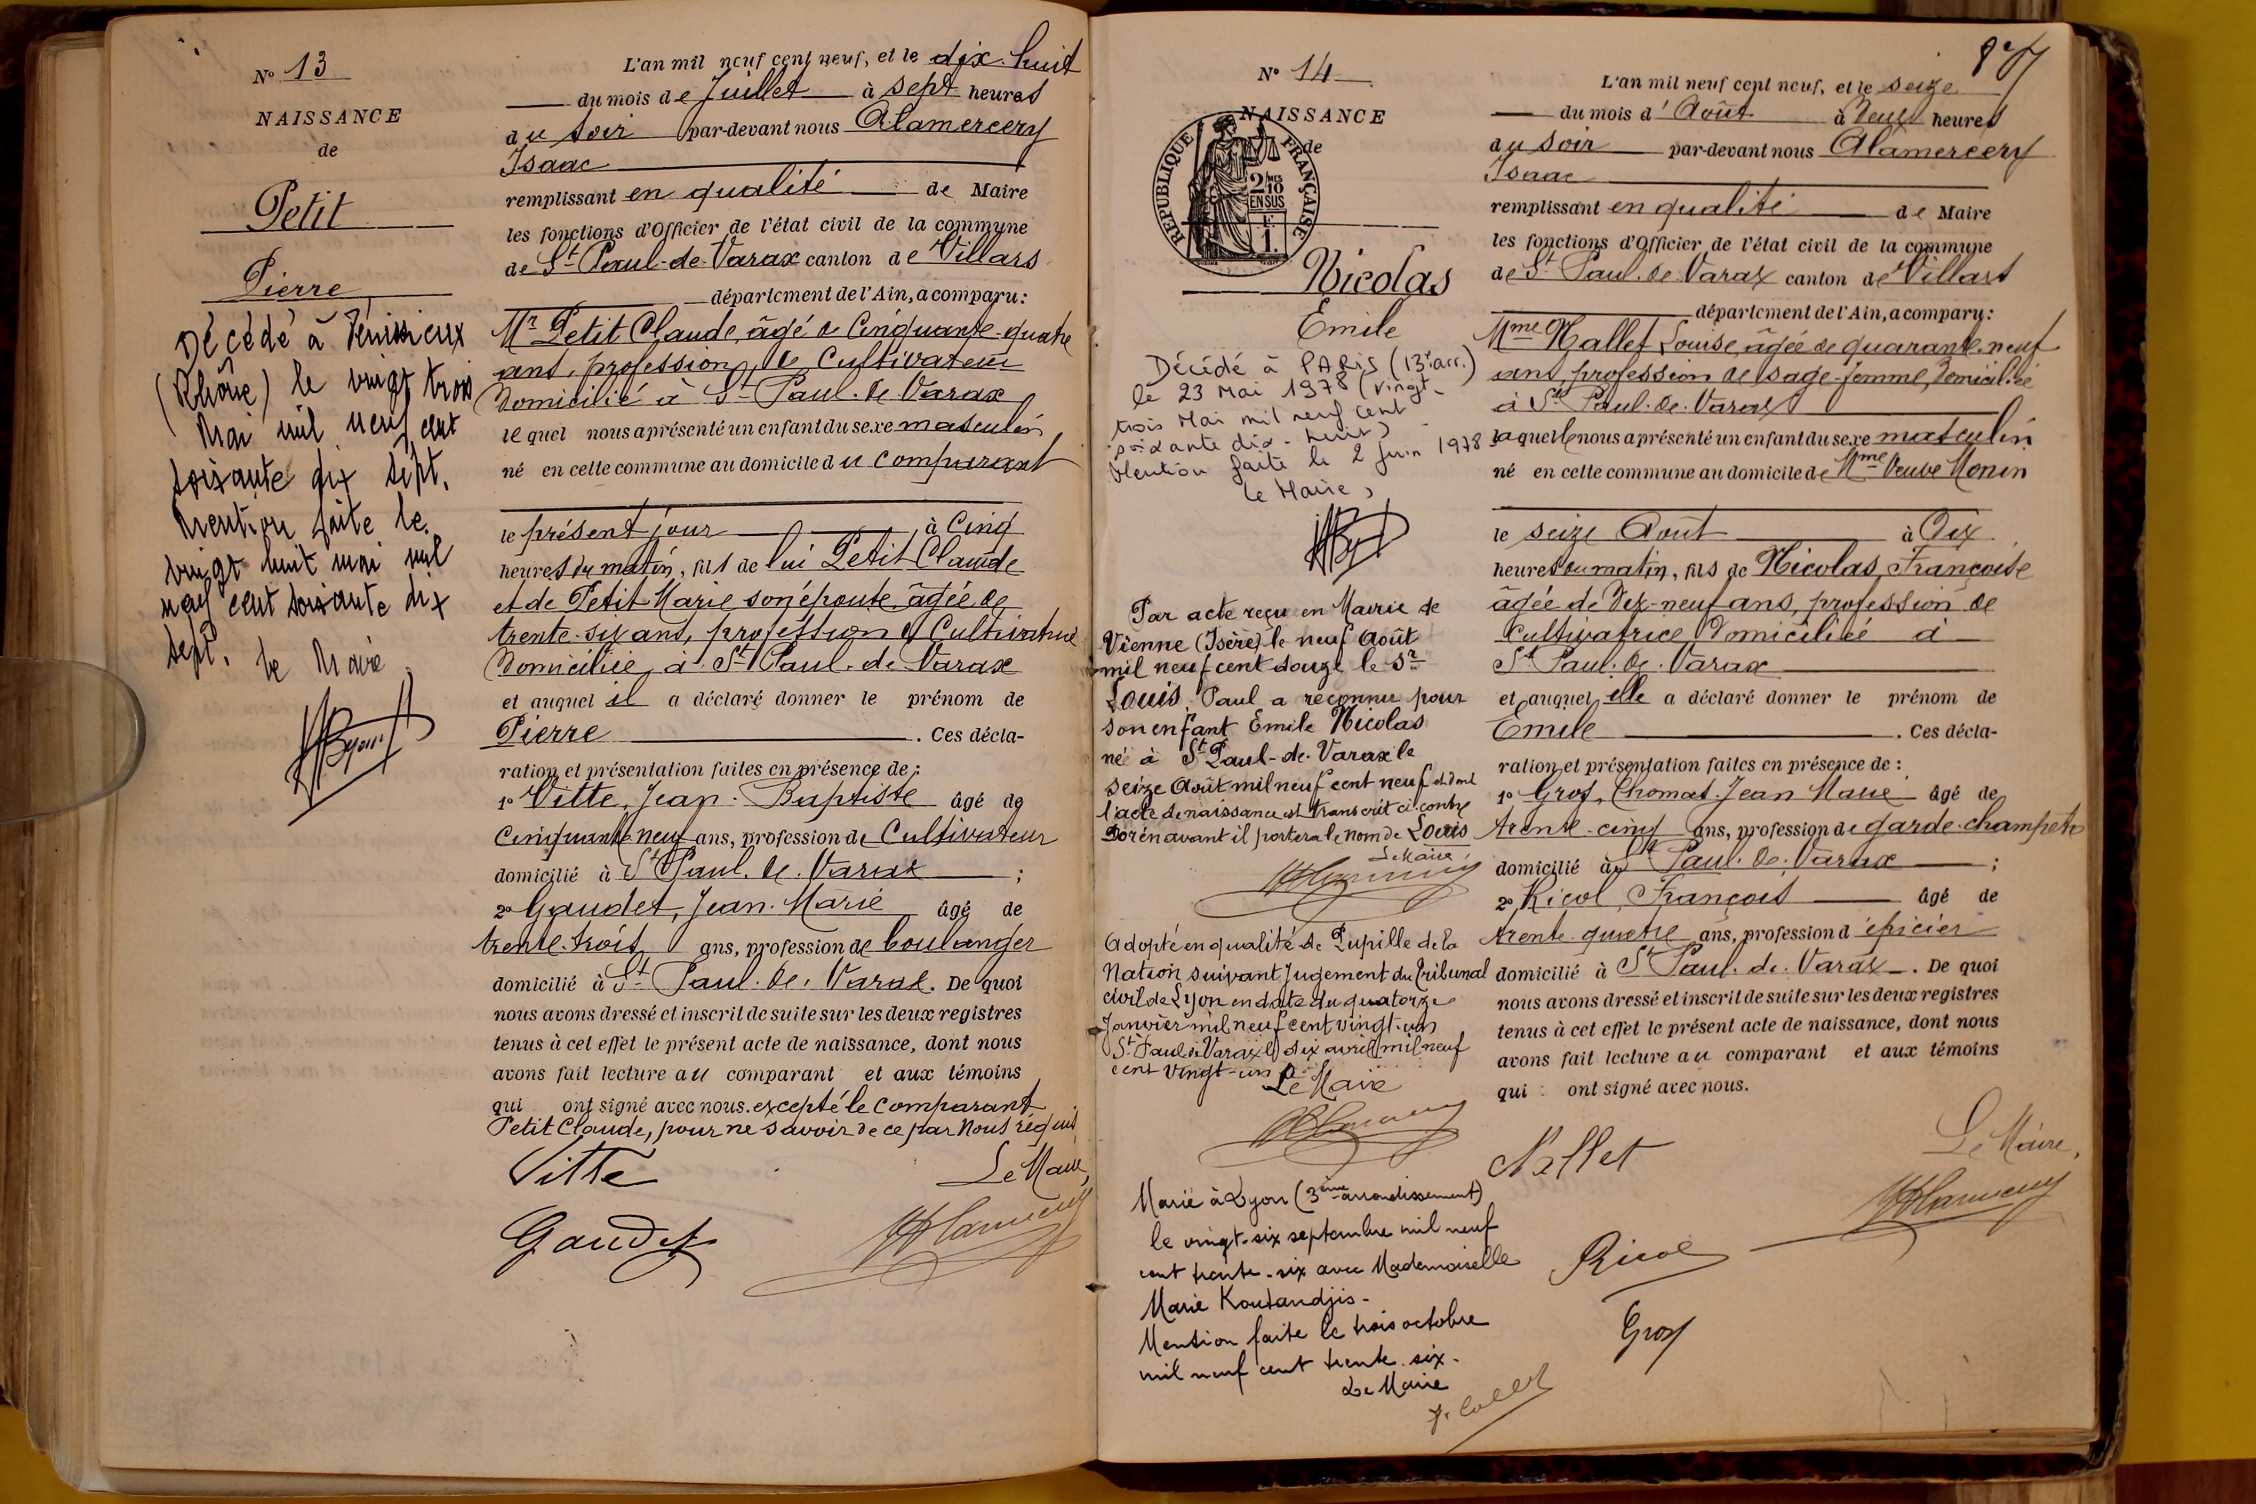 N° 13
NAISSANCE
de
Petit
Pierre
Décédé à Vénissieux
(Rhône) le vingt trois
Mai mil neuf cent
soixante dix sept.
Mention faite le
vingt huit mai mil
neuf cent soixante dix
sept. le Maire
L'an mil neuf cent neuf, et le dix-huit
du mois de Juillet à sept heures
du soir par-devant nous Alamercery
Isaac
remplissant en qualité de Maire
les fonctions d'Officier de l'état civil de la commune
de St Paul-de-Varax canton de Villars
département de l'Ain, a comparu:
Mr Petit Claude, âgé de Cinquante-quatre
ans, profession de Cultivateur
Domicilié à St Paul-de-Varax
lequel nous a présenté un enfant du sexe masculin
né en cette commune au domicile du comparant
le présent jour à Cinq
heures du matin, fils de lui Petit Claude
et de Petit Marie son épouse, âgée de
trente-six ans, profession de Cultivatrice
Domiciliée à St Paul-de-Varax
et auquel il a déclaré donner le prénom de
Pierre. Ces décla-
ration et présentation faites en présence de:
1° Vitte, Jean-Baptiste âgé de
Cinquante neuf ans, profession de Cultivateur
domicilié à St Paul-de-Varax;
2° Gaudet, Jean-Marie âgé de
trente-trois ans, profession de boulanger
domicilié à St Paul-de-Varax. De quoi
nous avons dressé et inscrit de suite sur les deux registres
tenus à cet effet le présent acte de naissance, dont nous
avons fait lecture au comparant et aux témoins
qui ont signé avec nous. excepté le comparant
Petit Claude, pour ne savoir de ce par Nous réquis
Vitte Le Maire,
Gaudet
N° 14
NAISSANCE
de
RÉPUBLIQUE FRANÇAISE
2/10 MES
EN SUS
1 F.
Nicolas
Emile
Décédé à PARIS (13e arr.)
le 23 Mai 1978 (vingt-
trois Mai mil neuf cent
soixante dix-huit)
Mention faite le 2 juin 1978
Le Maire,
Par acte reçu en Mairie de
Vienne (Isère) le neuf Août
mil neuf cent douze le Sr
Louis, Paul a reconnu pour
son enfant Emile Nicolas
né à St Paul-de-Varax le
seize Août mil neuf cent neuf et dont
l'acte de naissance est transcrit ci-contre
Dorénavant il portera le nom de Louis
Le Maire,
Adopté en qualité de Pupille de la
Nation suivant Jugement du Tribunal
civil de Lyon en date du quatorze
Janvier mil neuf cent vingt-un
St Paul de Varax le dix avril mil neuf
cent vingt-un
Le Maire
Marié à Lyon (3ème arrondissement)
le vingt-six septembre mil neuf
cent trente-six avec Mademoiselle
Marie Koutandjis-
Mention faite le trois octobre
mil neuf cent trente-six-
Le Maire
L'an mil neuf cent neuf, et le seize
du mois d'Août à Deux heures
du soir par-devant nous Alamercery
Isaac
remplissant en qualité de Maire
les fonctions d'Officier de l'état civil de la commune
de St Paul-de-Varax canton de Villars
département de l'Ain, a comparu:
Mme Nallet Louise, âgée de quarante-neuf
ans, profession de sage-femme, Domiciliée
à St Paul-de-Varax
laquelle nous a présenté un enfant du sexe masculin
né en cette commune au domicile de Mme Veuve Monin
le seize Août à Dix
heures du matin, fils de Nicolas, Françoise
âgée de Dix-neuf ans, profession de
Cultivatrice Domiciliée à
St Paul-de-Varax
et auquel elle a déclaré donner le prénom de
Emile. Ces décla-
ration et présentation faites en présence de:
1° Gros, Thomas-Jean Marie âgé de
trente-cinq ans, profession de garde-champêtre
domicilié à St Paul-de-Varax;
2° Ricol, François âgé de
trente-quatre ans, profession d'épicier
domicilié à St Paul-de-Varax. De quoi
nous avons dressé et inscrit de suite sur les deux registres
tenus à cet effet le présent acte de naissance, dont nous
avons fait lecture au comparant et aux témoins
qui ont signé avec nous.
Nallet Le Maire,
Ricol
Gros